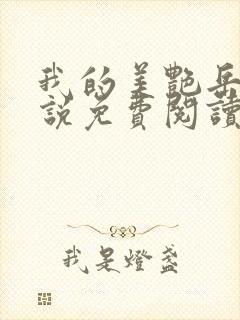 我的美艷岳
說免費閱讀
我是燈盞